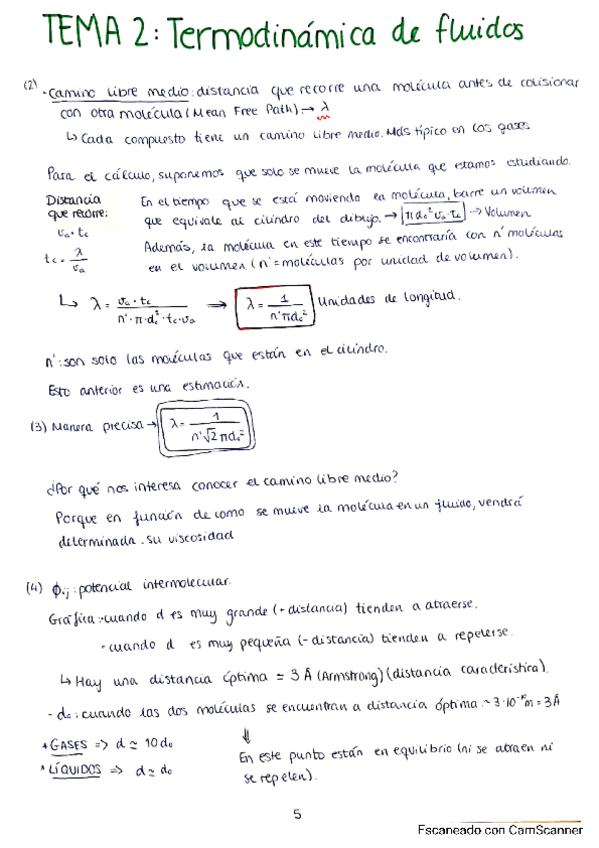 TEMA 2: Termodinámica de fluidos
(2) · Camino libre medio: distancia que recorre una molécula antes de colisionar
con otra molécula (Mean Free Path). → λ
↳ Cada compuesto tiene un camino libre medio. Más típico en los gases
Para el cálculo, suponemos que solo se mueve la molécula que estamos estudiando.
Distancia que recorre:
va · tc
tc = λ / va
En el tiempo que se está moviendo la molécula, barre un volumen
que equivale al cilindro del dibujo. → πdo² va · tc → Volumen
Además, la molécula en este tiempo se encontraría con n' moléculas
en el volumen. (n' = moléculas por unidad de volumen).
↳ λ = va · tc / n' · π · do² · tc · va ⇒ λ = 1 / n'πdo² Unidades de longitud.
n': son solo las moléculas que están en el cilindro.
Esto anterior es una estimación.
(3) Manera precisa → λ = 1 / n'√2 πdo²
¿Por qué nos interesa conocer el camino libre medio?
Porque en función de como se mueve la molécula en un fluido, vendrá
determinada su viscosidad
(4) ϕij: potencial intermolecular.
Gráfica: · cuando d es muy grande (+ distancia) tienden a atraerse.
· cuando d es muy pequeña (- distancia) tienden a repelerse.
↳ Hay una distancia óptima = 3 Å (Armstrong) (distancia característica).
- do: cuando las dos moléculas se encuentran a distancia óptima. ~ 3·10⁻¹⁰m = 3Å
* GASES => d ≃ 10do
* LÍQUIDOS => d ≃ do
⇓
En este punto están en equilibrio (ni se atraen ni
se repelen).
5
Escaneado con CamScanner